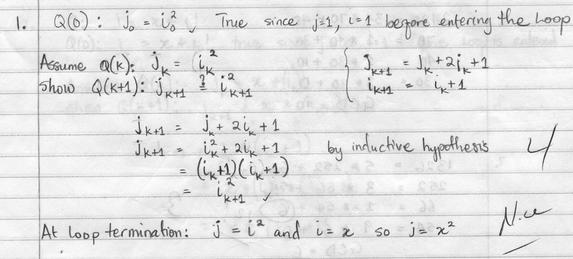 1. Q(0): j₀ = i₀² ✓ True since j=1, i=1 before entering the Loop
Assume Q(k): jₖ = iₖ²
Show Q(k+1): jₖ₊₁ ≟ i²ₖ₊₁
{ jₖ₊₁ = jₖ + 2iₖ + 1
iₖ₊₁ = iₖ + 1
jₖ₊₁ = jₖ + 2iₖ + 1
jₖ₊₁ = iₖ² + 2iₖ + 1 by inductive hypothesis
= (iₖ+1)(iₖ+1)
= i²ₖ₊₁ ✓
4
At Loop termination: j = i² and i = x so j = x²
Nice